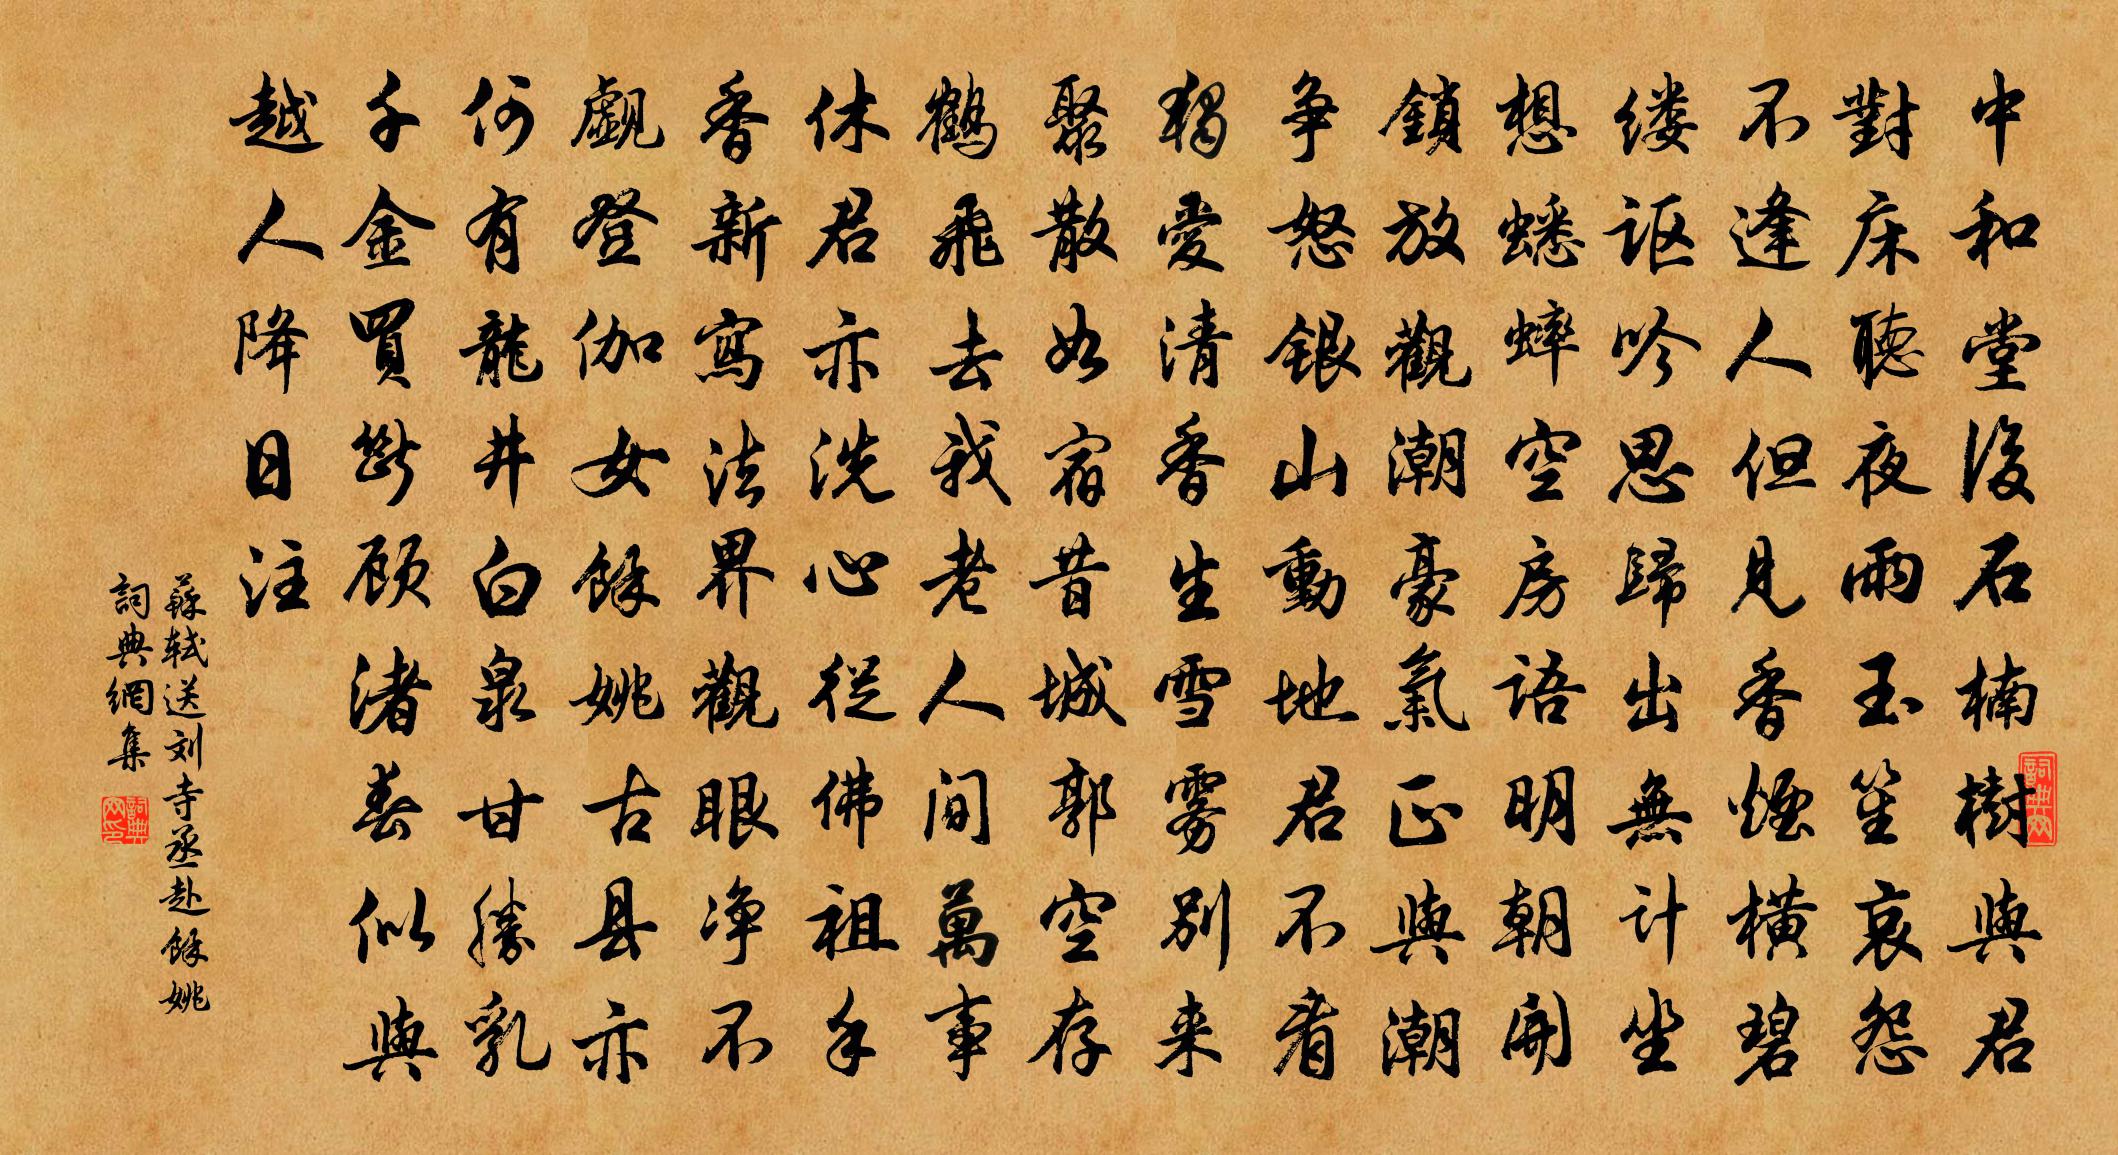 中和堂後石楠樹與君
對床聽夜雨玉笙哀怨
不逢人但見香煙橫碧
缕讴吟思歸出無計坐
想蟋蟀空房語明朝開
鎖放觀潮豪氣正與潮
争怒銀山動地君不看
獨愛清香生雪雾別来
聚散如宿昔城郭空存
鶴飛去我老人间萬事
休君亦洗心從佛祖手
香新寫法界觀眼净不
覷登伽女餘姚古县亦
何有龍井白泉甘勝乳
千金買斷顾渚春似與
越人降日注
蘇轼送刘寺丞赴餘姚
詞典網集
詞典网
詞典网印